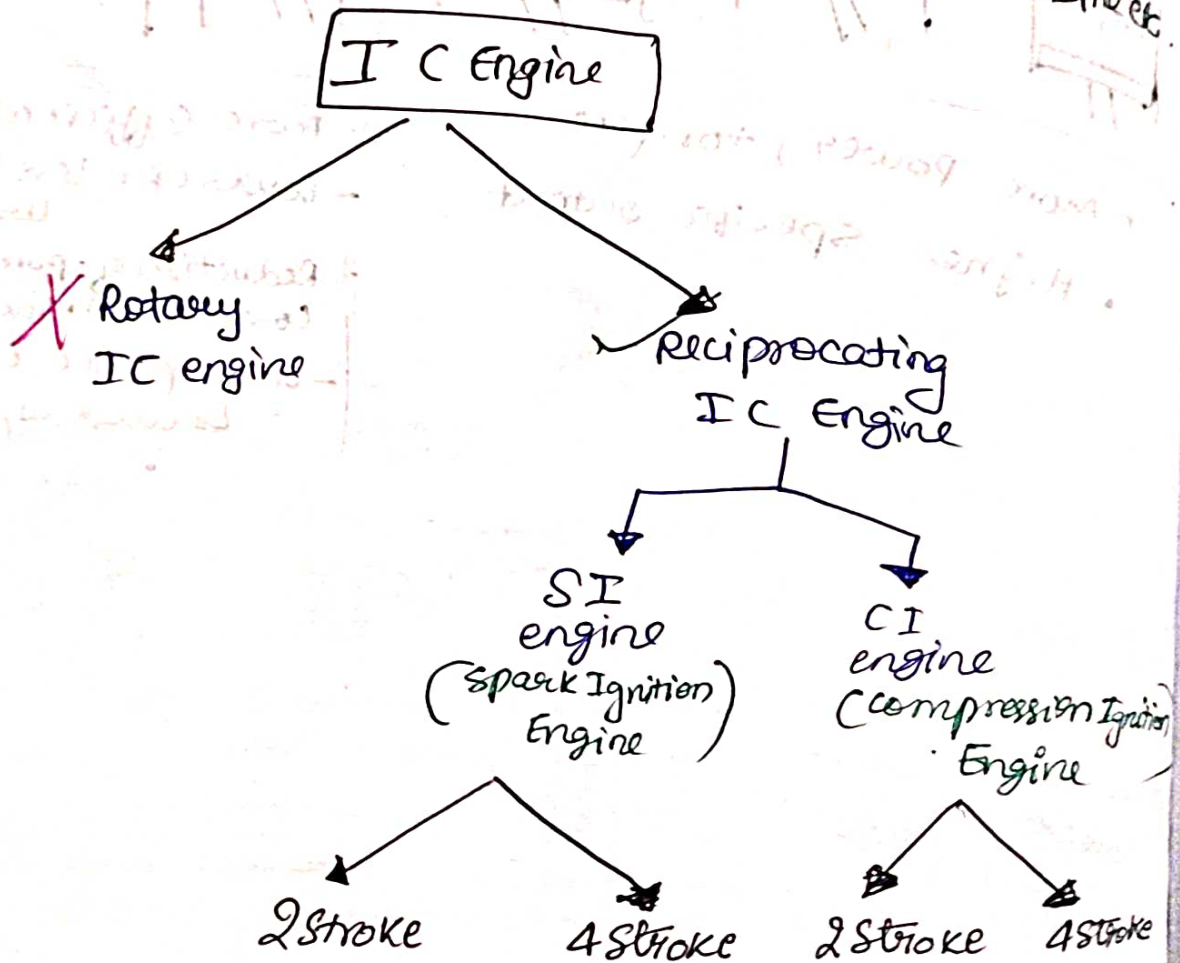 I C Engine
Rotary
IC engine
Reciprocating
IC Engine
SI
engine
(Spark Ignition
Engine)
CI
engine
(compression Ignition)
Engine
2 Stroke
4 Stroke
2 Stroke
4 Stroke